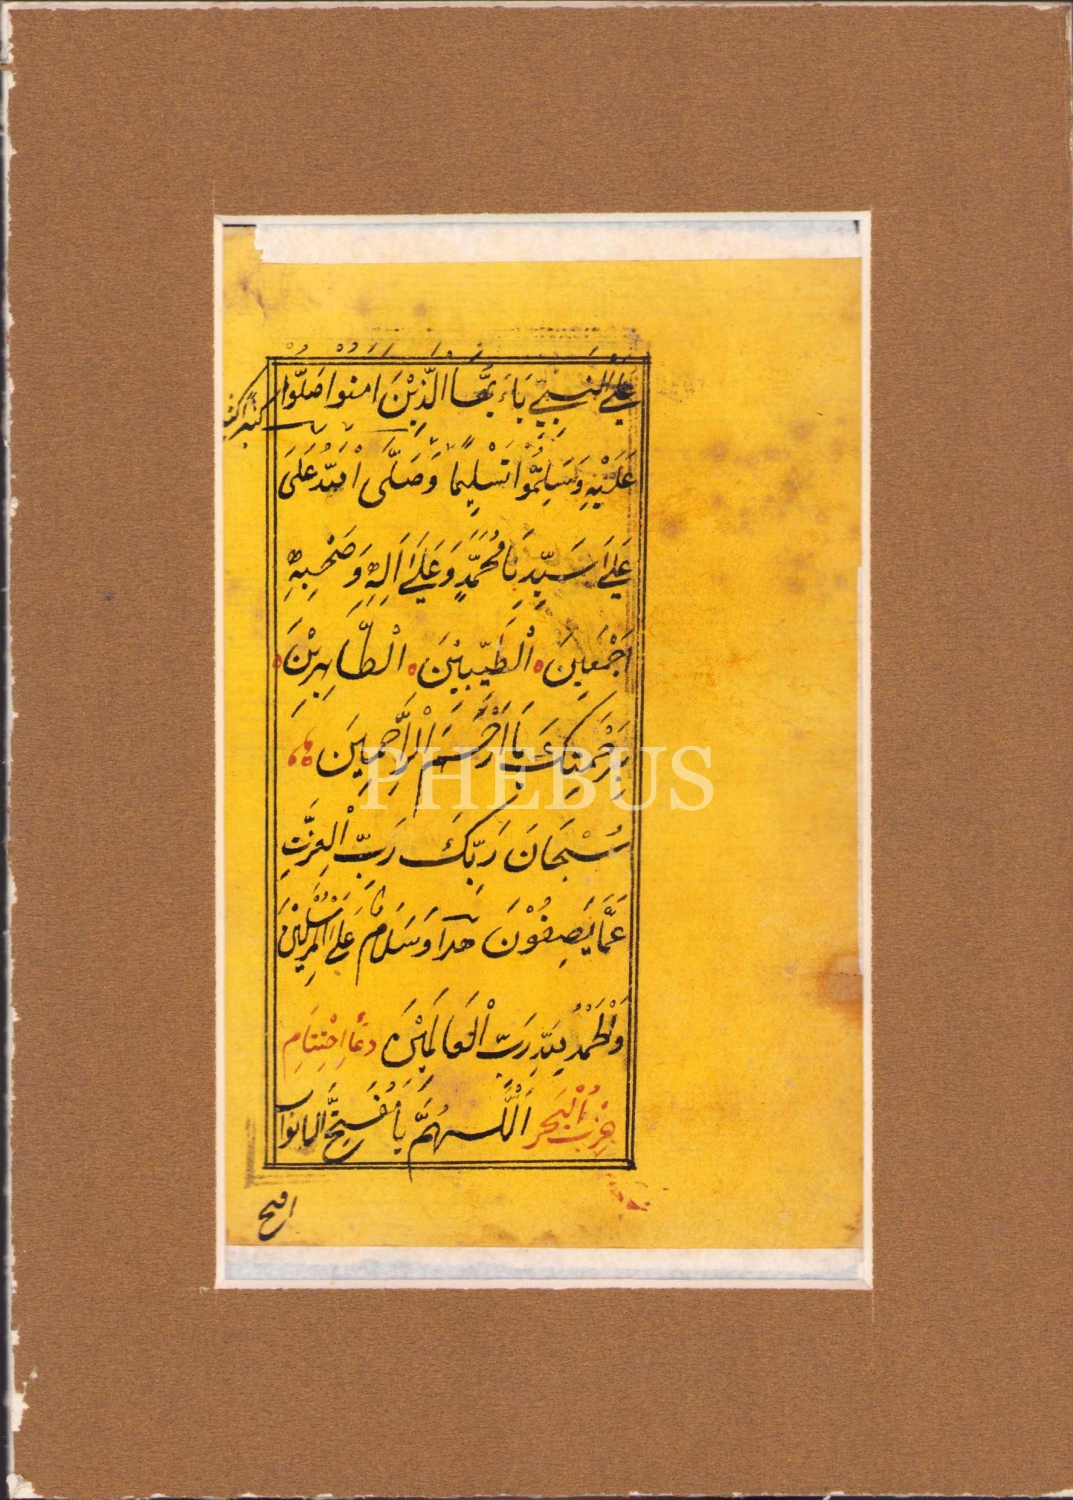 عَلَى النَّبِيِّ يَاءَ يُّهَا الَّذِيْنَ اٰمَنُوْا صَلُّوْا
عَلَيْهِ وَسَلِّمُوْا تَسْلِيمًا وَصَلَّى اللّٰهُ عَلَى
عَلَى سَيِّدِنَا مُحَمَّدٍ وَعَلَى اَلِهِ وَصَحْبِهِ
اَجْمَعِينَ الْطَيِّبِيْنَ الْطَّاهِرِيْنَ
بِرَحْمَتِكَ يَا اَرْحَمَ الْرَّاحِمِينَ
سُبْحَانَ رَبِّكَ رَبِّ الْعِزَّتِ
عَمَّا يَصِفُوْنَ وَسَلَامٌ عَلَى الْمُرْسَلِيْنَ
وَلْحَمْدُ لِلّٰهِ رَبِّ الْعَالَمِيْنَ دُعَاءِ اِخْتِتَامِ
حِزْبُ الْبَحْر اَللّٰهُمَّ يَا مُفَتِّحَ الابواب
افتح
PHEBUS